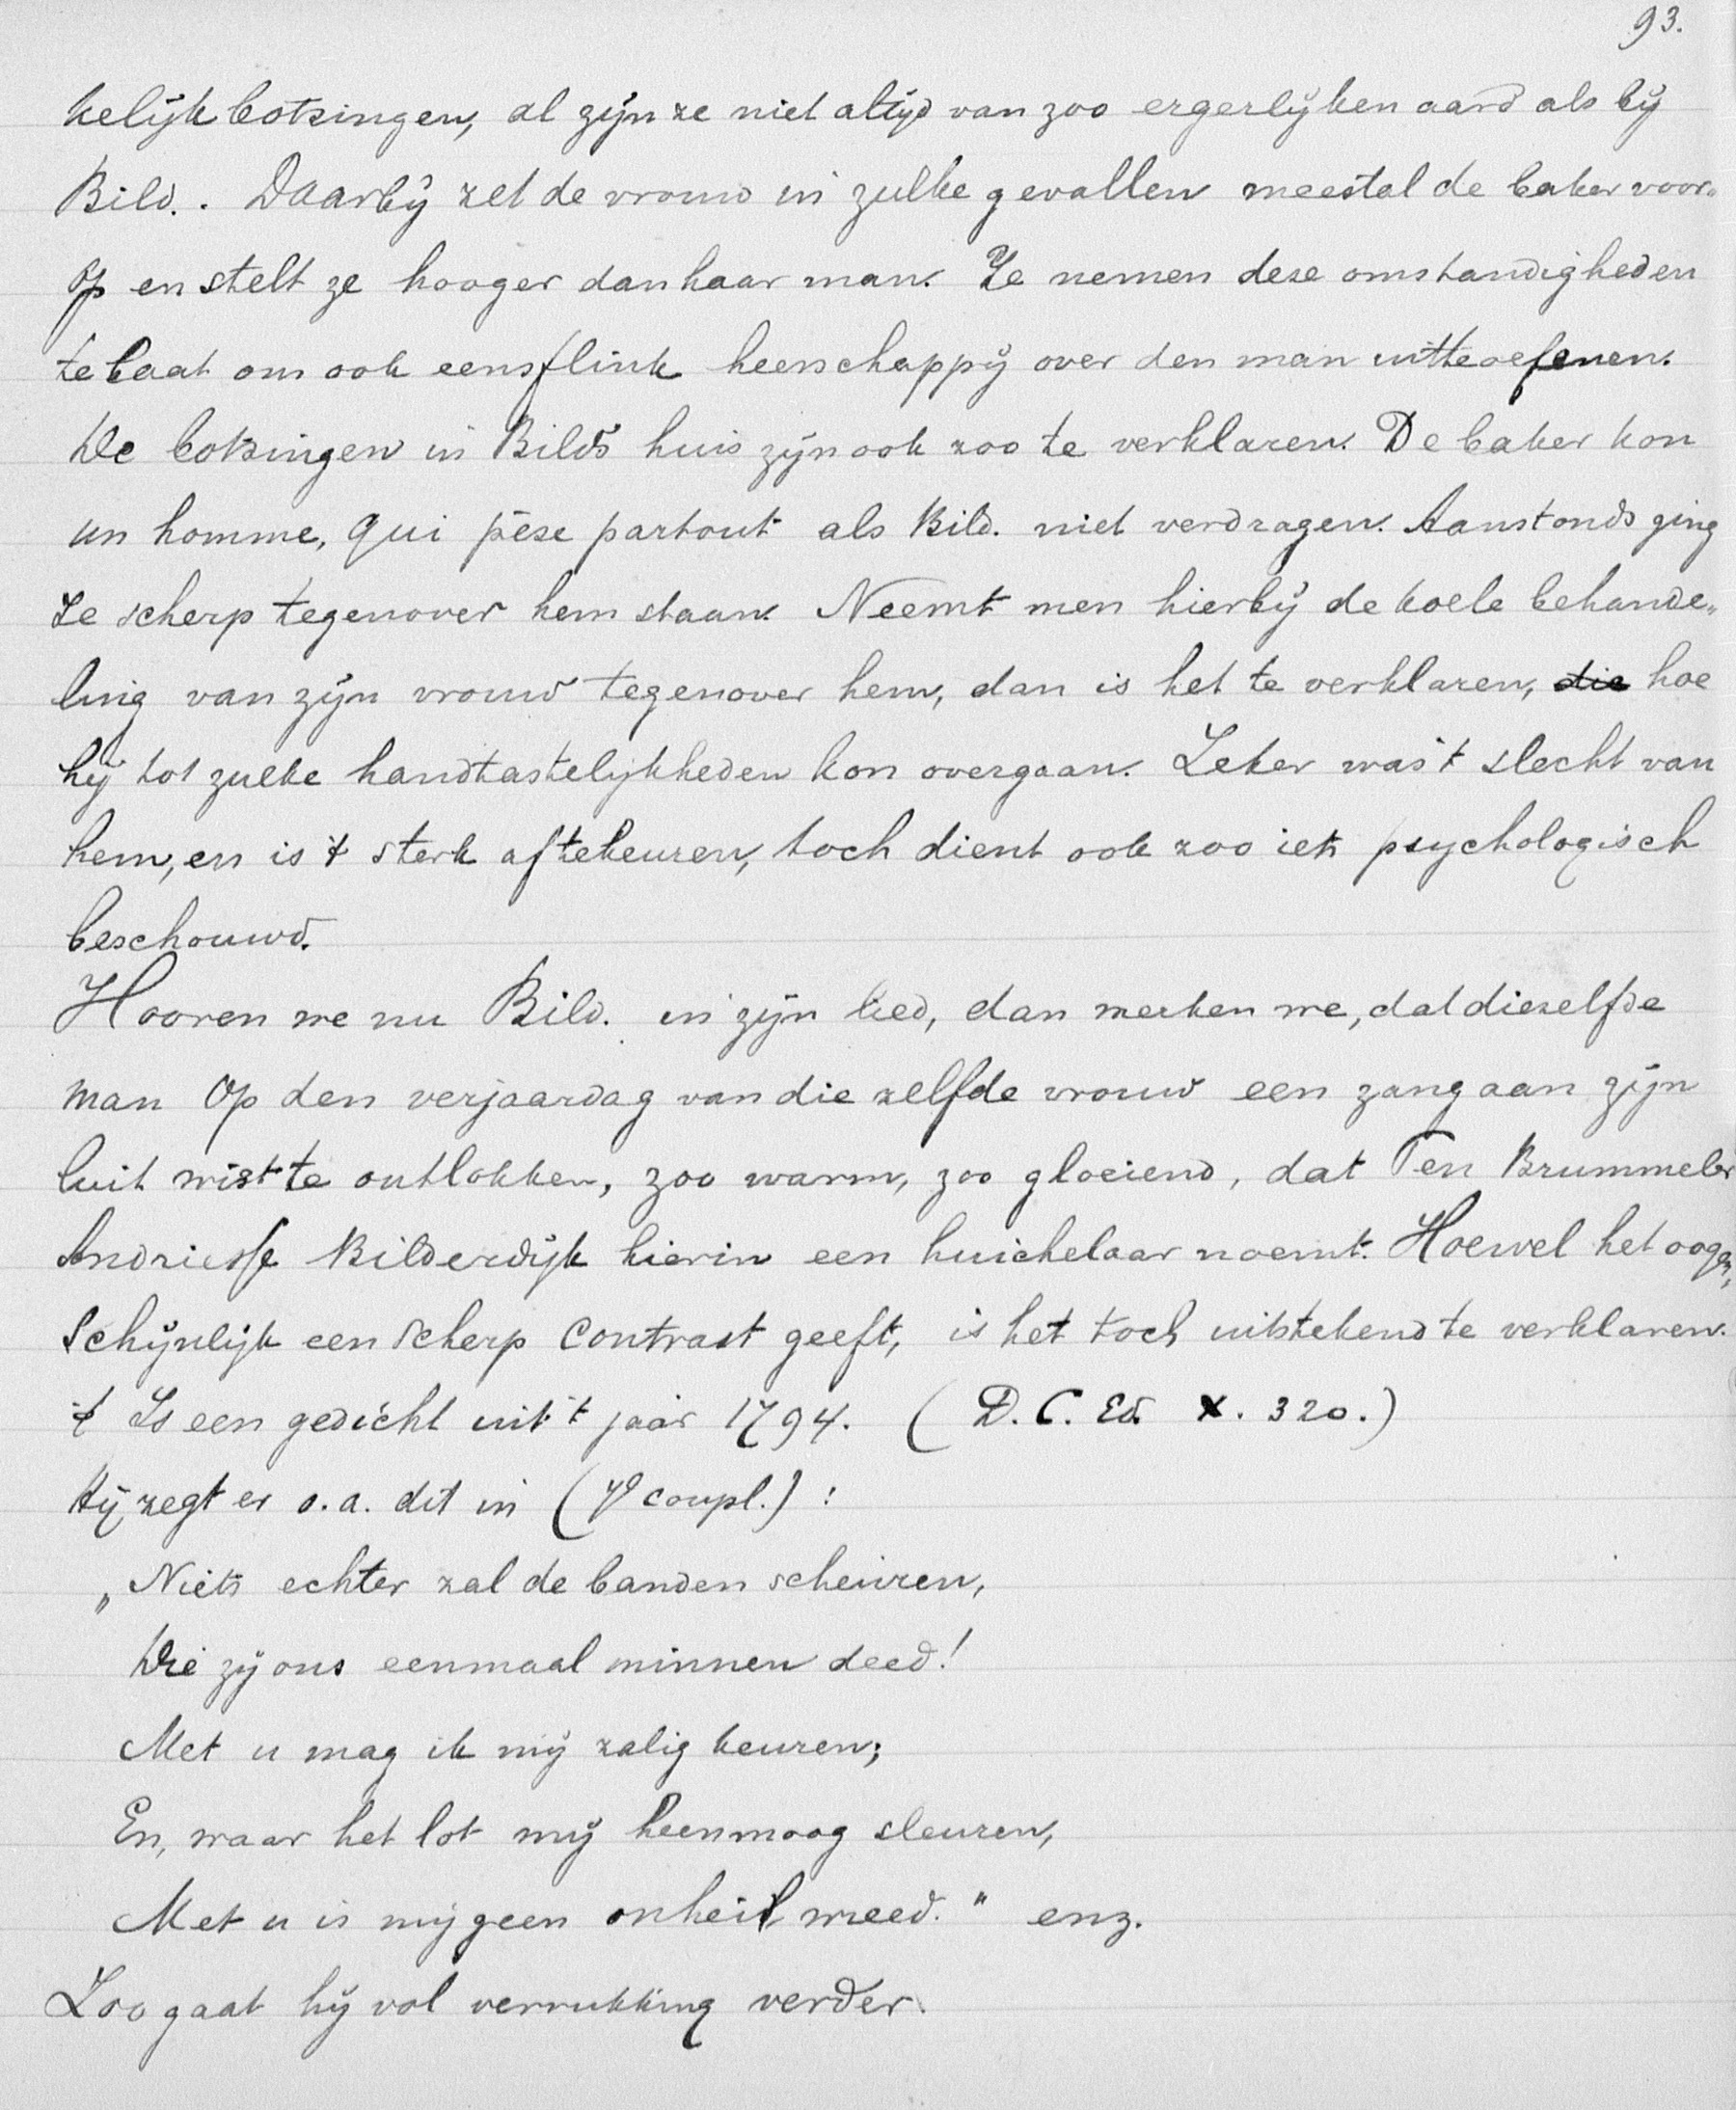 93.
kelijk botsingen, al zijn ze niet altijd van zoo ergerlijken aard als bij
Bild.. Daarbij zet de vrouw in zulke gevallen meestal de baker voor„
op en stelt ze hooger dan haar man. Ze nemen deze omstandigheden
te baat om ook eens flink heerschappij over den man uitteoefenen.
De botsingen in Bild's huis zijn ook zoo te verklaren. De baker kon
un homme, qui pèse partout als Bild. niet verdragen. Aanstonds ging
ze scherp tegenover hem staan. Neemt men hierbij de koele behande„
ling van zijn vrouw tegenover hem, dan is het te verklaren, die hoe
hij tot zulke handtastelijkheden kon overgaan. Zeker was 't slecht van
hem, en is 't sterk aftekeuren, toch dient ook zoo iets psychologisch
beschouwd.
Hooren we nu Bild. in zijn lied, dan merken we, dat diezelfde
man op den verjaardag van die zelfde vrouw een zang aan zijn
luit wist te ontlokken, zoo warm, zoo gloeiend, dat Ten Brummeler
Andriesse Bilderdijk hierin een huichelaar noemt. Hoewel het oogen„
schijnlijk een scherp contrast geeft, is het toch uitstekend te verklaren.
't Is een gedicht uit 't jaar 1794. (D. C. Ed. X. 320.)
Hij zegt er o.a. dit in (7e coupl.) :
„Niets echter zal de banden scheuren,
Die zij ons eenmaal minnen deed!
Met u mag ik mij zalig keuren;
En, waar het lot mij heenmoog sleuren,
Met u is mij geen onheil wreed." enz.
Zoo gaat hij vol verrukking verder.